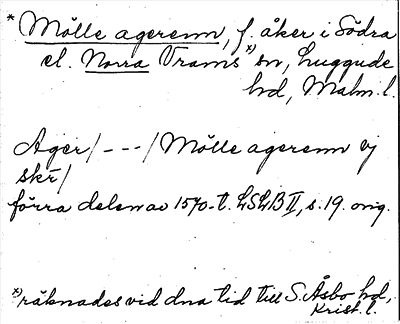 * Mölle agerenn, f. åker i Södra
el. Norra Vrams*) sn, Luggude
hd, Malm. l.
Ager/ - - - / Mölle agerenn ij
skr/
förra delen av 1570-t. LSLB II, s. 19. orig.
*) räknades vid dna tid till S. Åsbo hd,
Krist. l.